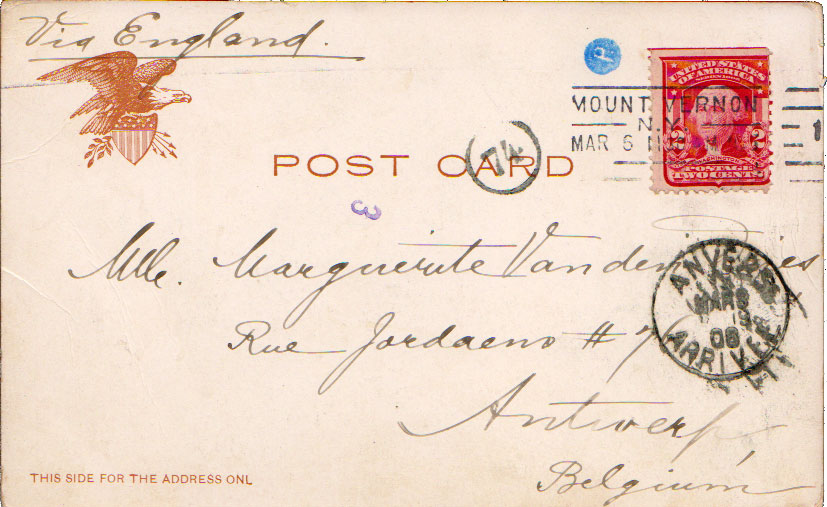 Via England.
P
UNITED STATES
OF AMERICA
2 2
WASHINGTON
POSTAGE
TWO CENTS
MOUNT VERNON
N.Y.
MAR 6
1
74
POST CARD
3
Mlle. Marguerite Vanden
Rue Jordaens # 7
Antwerp
Belgium
ANVERS
MARS
06
ARRIVEE
THIS SIDE FOR THE ADDRESS ONL